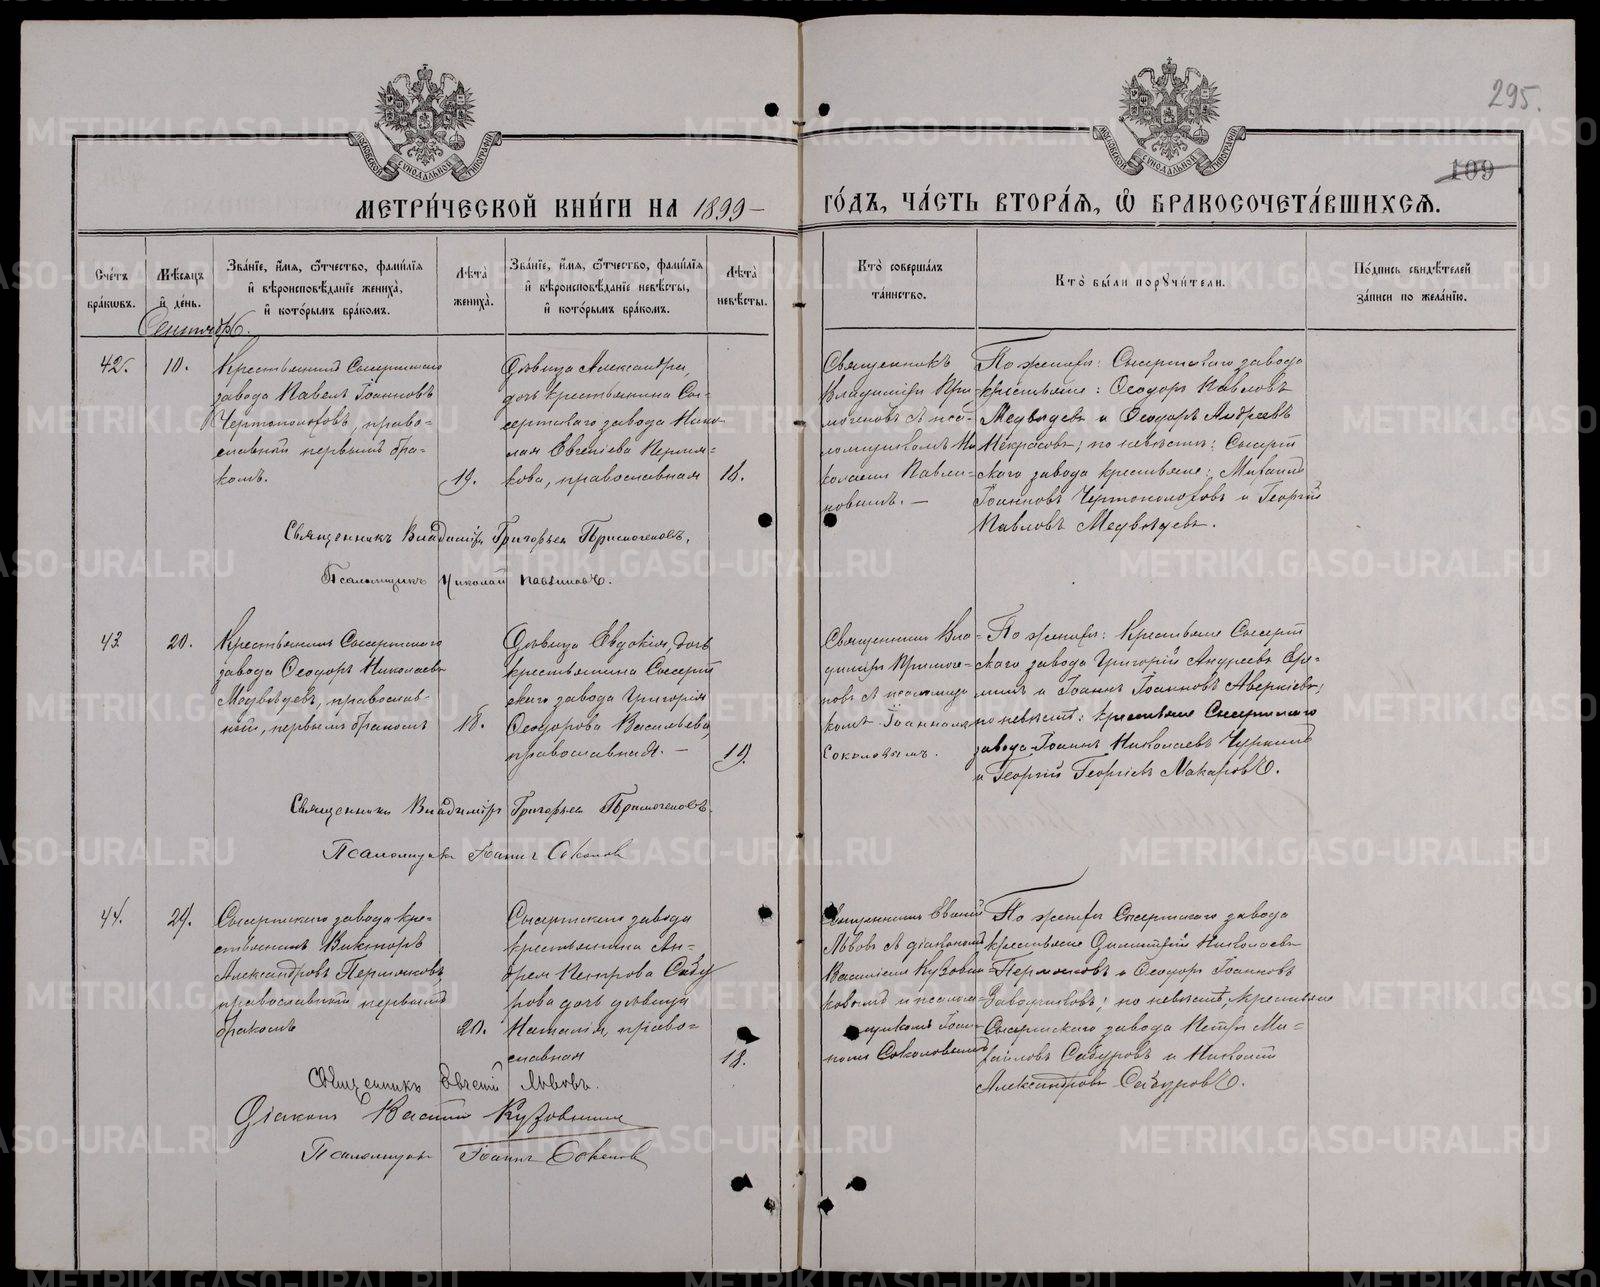 295.
109
МЕТРИ́ЧЕСКОЙ КНИ́ГИ НА 1899 –
ГО́ДЪ, ЧА́СТЬ ВТОРА́Я, Ѽ БРАКОСОЧЕТА́ВШИХСЯ.
Сче́тъ
бра́ковъ.
Мѣ́сяцъ
и҆ де́нь.
Зва́нїе, и҆́мя, ѻ҆́тчество, фами́лїя
и҆ вѣроисповѣ́данїе жениха̀,
и҆ кото́рымъ бра́комъ.
Лѣта̀
жениха̀.
Зва́нїе, и҆́мя, ѻ҆́тчество, фами́лїя
и҆ вѣроисповѣ́данїе невѣ́сты,
и҆ кото́рымъ бра́комъ.
Лѣта̀
невѣ́сты.
Кто̀ соверша́лъ
та́инство.
Кто̀ бы́ли порꙋчи́тели.
По́дпись свидѣ́телей
за́писи по жела́нїю.
Сентябрь.
42.
10.
Крестьянинъ Сысертскаго
завода Павелъ Іоанновъ
Чертополоховъ, право-
славный первымъ бра-
комъ.
19.
Дѣвица Александра,
дочь крестьянина Сы-
сертскаго завода Нико-
лая Евгеніева Пермя-
кова, православная
18.
Священникъ
Владиміръ При-
могеновъ съ пса-
ломщикомъ Ни-
колаемъ Павли-
новымъ. –
По женихѣ: Сысертскаго завода
крестьяне: Ѳеодоръ Павловъ
Медвѣдевъ и Ѳеодоръ Андреевъ
Некрасовъ; по невѣстѣ: Сысерт-
скаго завода крестьяне: Михаилъ
Іоанновъ Чертополоховъ и Георгій
Павловъ Медвѣдевъ.
Священникъ Владиміръ Григорьевъ Примогеновъ.
Псаломщикъ Николай Павлиновъ.
43.
20.
Крестьянинъ Сысертскаго
завода Ѳеодоръ Николаевъ
Медвѣдевъ, православ-
ный, первымъ бракомъ
18.
Дѣвица Евдокія, дочь
крестьянина Сысерт-
скаго завода Григорія
Ѳеодорова Васильева,
православная. –
19.
Священникъ Вла-
диміръ Примоге-
новъ съ псаломщи-
комъ Іоанномъ
Соколовымъ.
По женихѣ: Крестьяне Сысерт-
скаго завода Григорій Андреевъ
и Іоаннъ Іоанновъ Аверкіевъ;
по невѣстѣ: крестьяне Сысертскаго
завода Іоаннъ Николаевъ
и Георгій Георгіевъ Макаровъ.
Священникъ Владиміръ Григорьевъ Примогеновъ.
Псаломщикъ Іоаннъ Соколовъ
44.
29.
Сысертскаго завода кре-
стьянинъ Викторъ
Александровъ Пермяковъ,
православный первымъ
бракомъ
20.
Сысертскаго завода
крестьянина Ан-
дрея Петрова Сабу-
рова дочь дѣвица
Наталія, право-
славная
18.
Священникъ Евгеній
Львовъ съ діакономъ
Василіемъ Кузовни-
ковымъ и псалом-
щикомъ Іоан-
номъ Соколовымъ
По женихѣ Сысертскаго завода
крестьяне Димитрій Николаевъ
Пермяковъ и Ѳеодоръ Іоанновъ
Заворотковъ; по невѣстѣ, крестьяне
Сысертскаго завода Петръ Ми-
хайловъ Сабуровъ и Николай
Александровъ Сабуровъ.
Священникъ Евгеній Львовъ.
Діаконъ Василій Кузовниковъ
Псаломщикъ Іоаннъ Соколовъ
METRIKI.GASO-URAL.RU